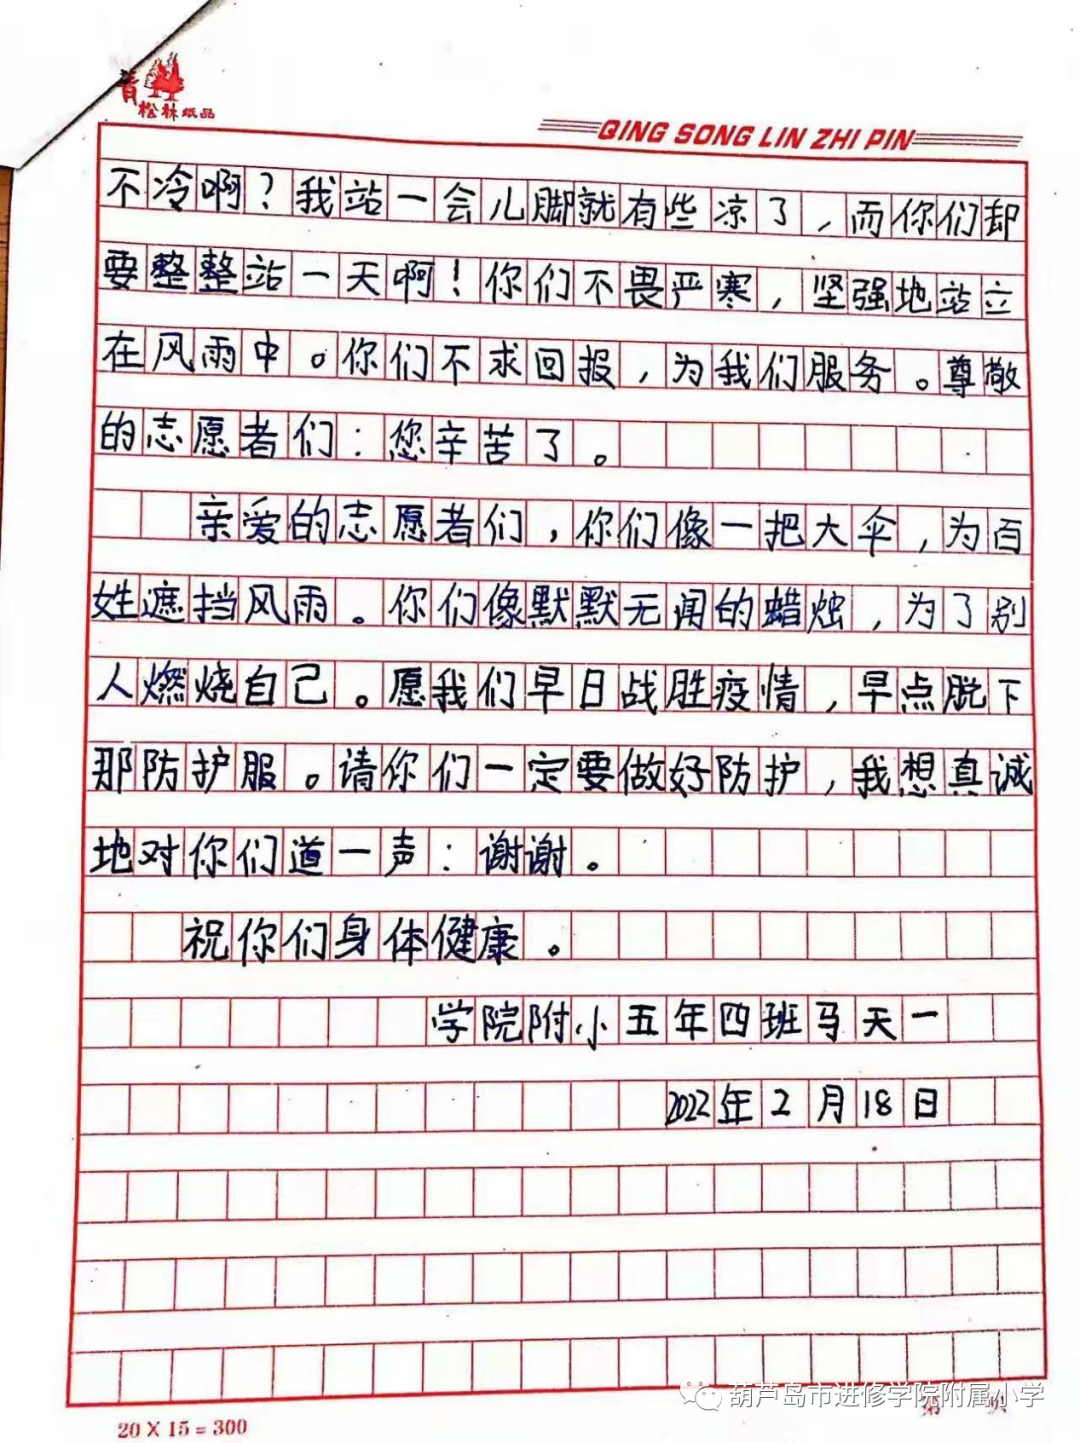 青松林纸品
QING SONG LIN ZHI PIN
不冷啊？我站一会儿脚就有些凉了，而你们却
要整整站一天啊！你们不畏严寒，坚强地站立
在风雨中。你们不求回报，为我们服务。尊敬
的志愿者们：您辛苦了。
亲爱的志愿者们，你们像一把大伞，为百
姓遮挡风雨。你们像默默无闻的蜡烛，为了别
人燃烧自己。愿我们早日战胜疫情，早点脱下
那防护服。请你们一定要做好防护，我想真诚
地对你们道一声：谢谢。
祝你们身体健康。
学院附小五年四班马天一
2022年2月18日
20 X 15 = 300
第 页
葫芦岛市进修学院附属小学